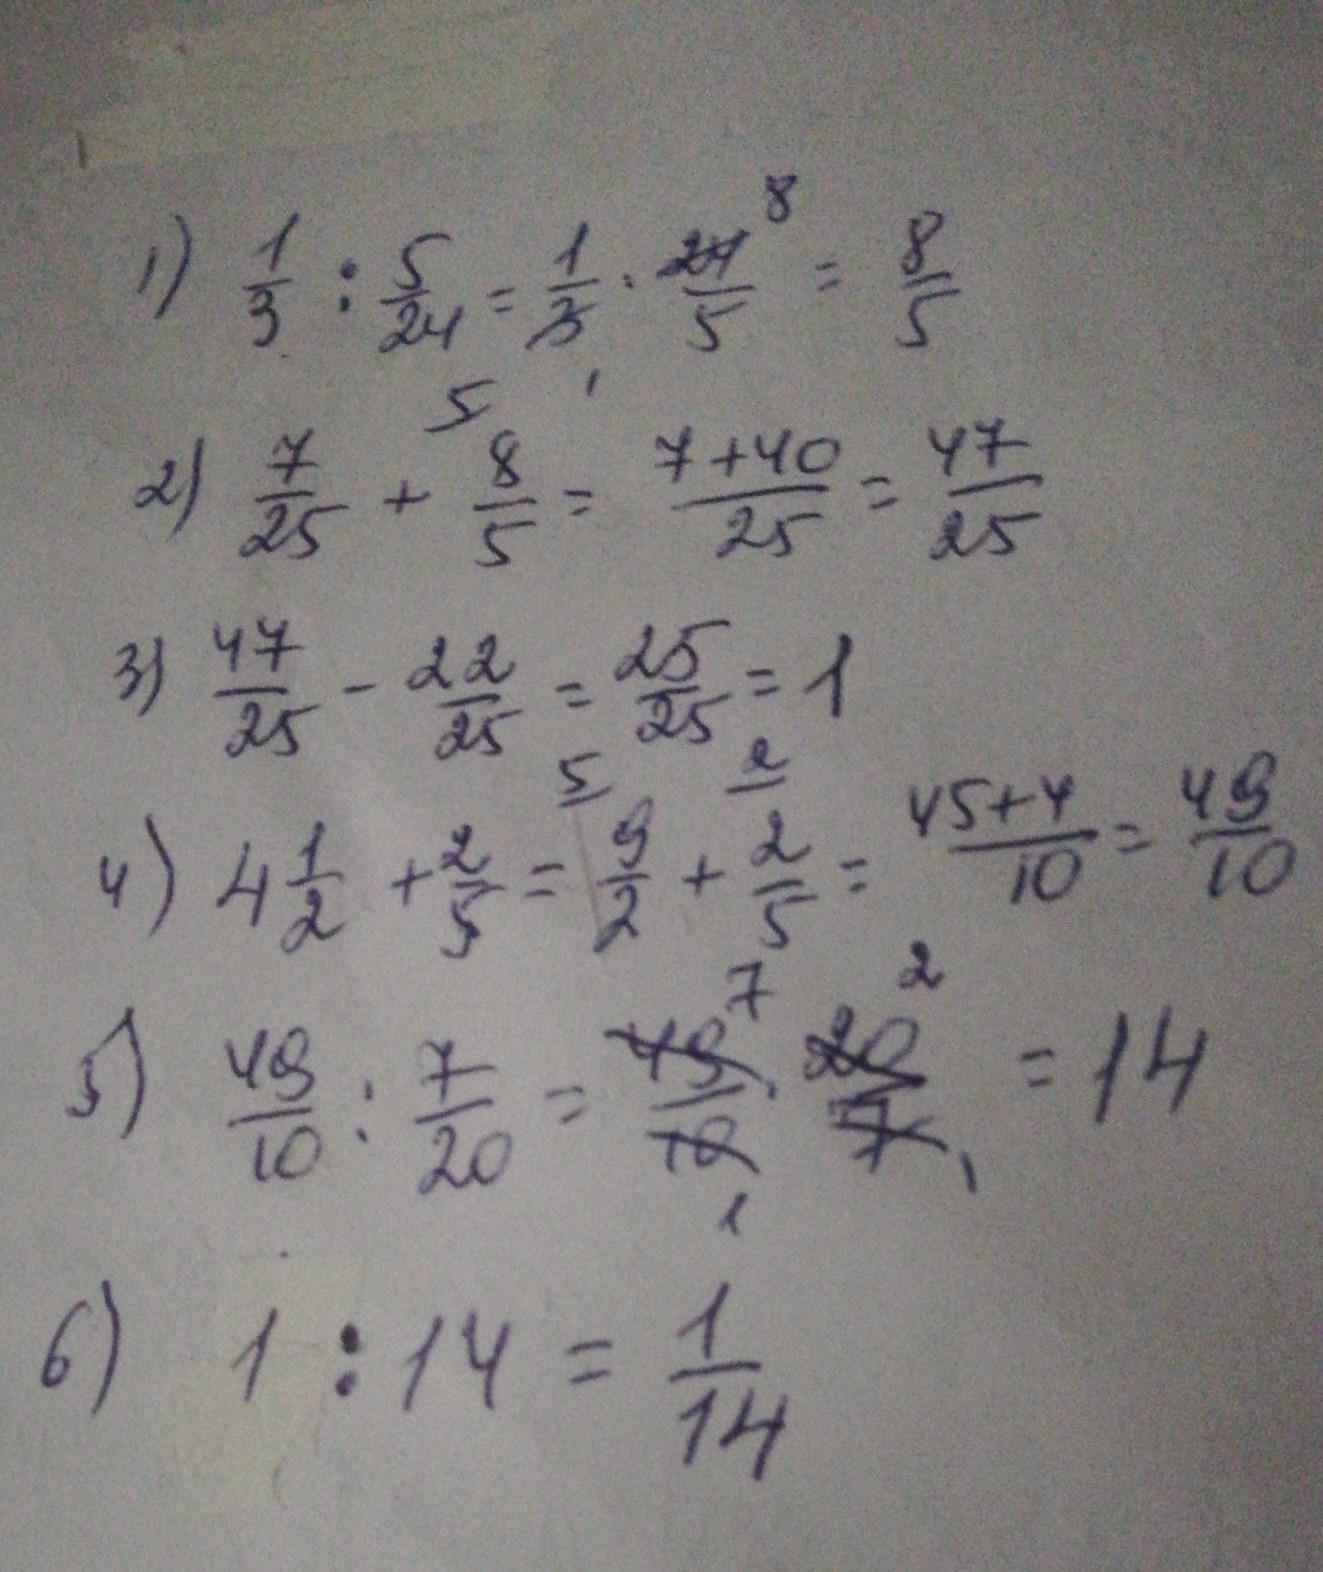 1) 1/3 : 5/24 = 1/3 1 · 24/5 8 = 8/5
2) 7/25 + 5 8/5 = 7+40/25 = 47/25
3) 47/25 - 22/25 = 25/25 = 1
4) 4 1/2 + 2/5 = 5 9/2 + 2 2/5 = 45+4/10 = 49/10
5) 49/10 : 7/20 = 49/10 7 1 · 20/7 2 1 = 14
6) 1 : 14 = 1/14